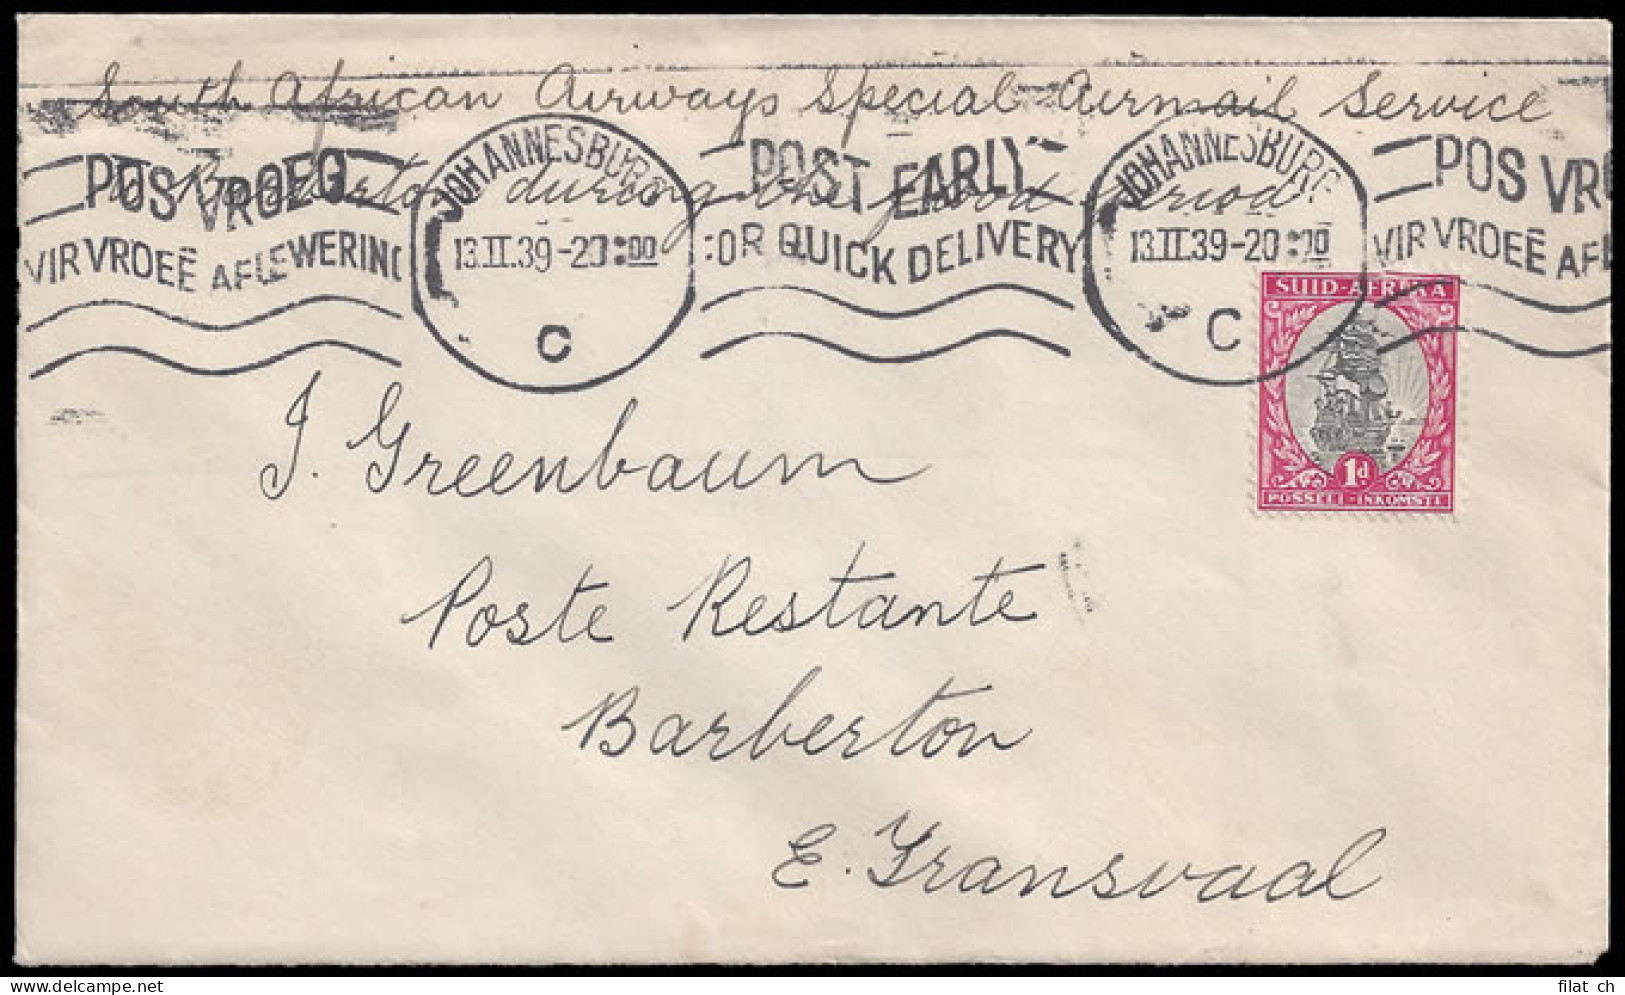 South African Airways Special Airmail Service
to Barberton during the flood period
POS VROEG
VIR VROEË AFLEWERING
JOHANNESBURG
13.II.39-20
C
POST EARLY
FOR QUICK DELIVERY
JOHANNESBURG
13.II.39-20
C
POS VRO
VIR VROEË AFL
SUID-AFRIKA
1d
POSSEËL-INKOMSTE
J. Greenbaum
Poste Restante
Barberton
E. Transvaal
filat ch